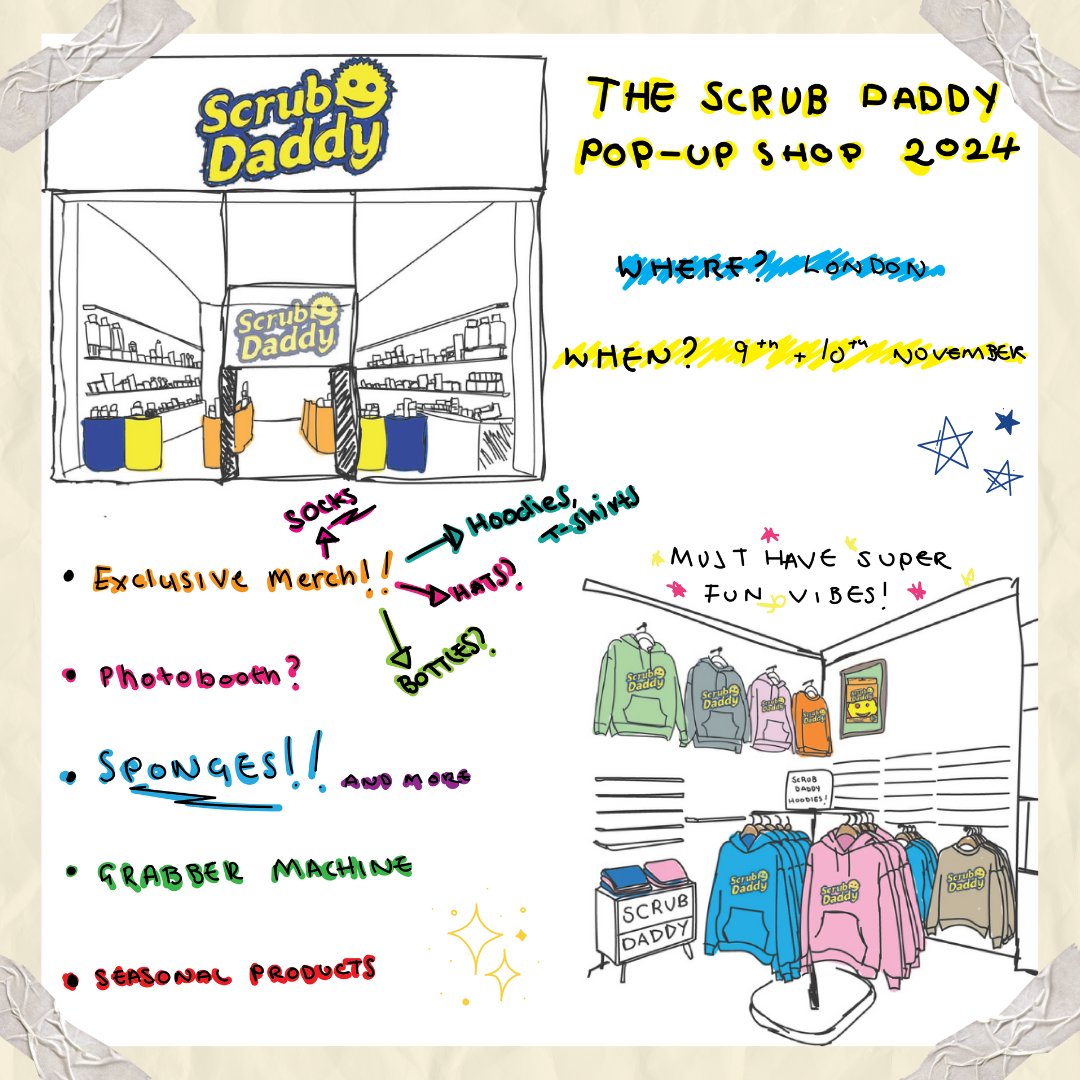 Scrub
Daddy
THE SCRUB DADDY
POP-UP SHOP 2024
WHERE? LONDON
WHEN? 9th + 10th NOVEMBER
Scrub
Daddy
SOCKS
Hoodies,
T-Shirts
• Exclusive Merch!!
HATS?
BOTTLES?
• Photobooth?
• SPONGES!! AND MORE
• GRABBER MACHINE
• SEASONAL PRODUCTS
MUST HAVE SUPER
FUN VIBES!
Scrub
Daddy
Scrub
Daddy
Scrub
Daddy
Scrub
Daddy
Scrub
Daddy
SCRUB
DADDY
HOODIES!
Scrub
Daddy
Scrub
Daddy
Scrub
Daddy
SCRUB
DADDY